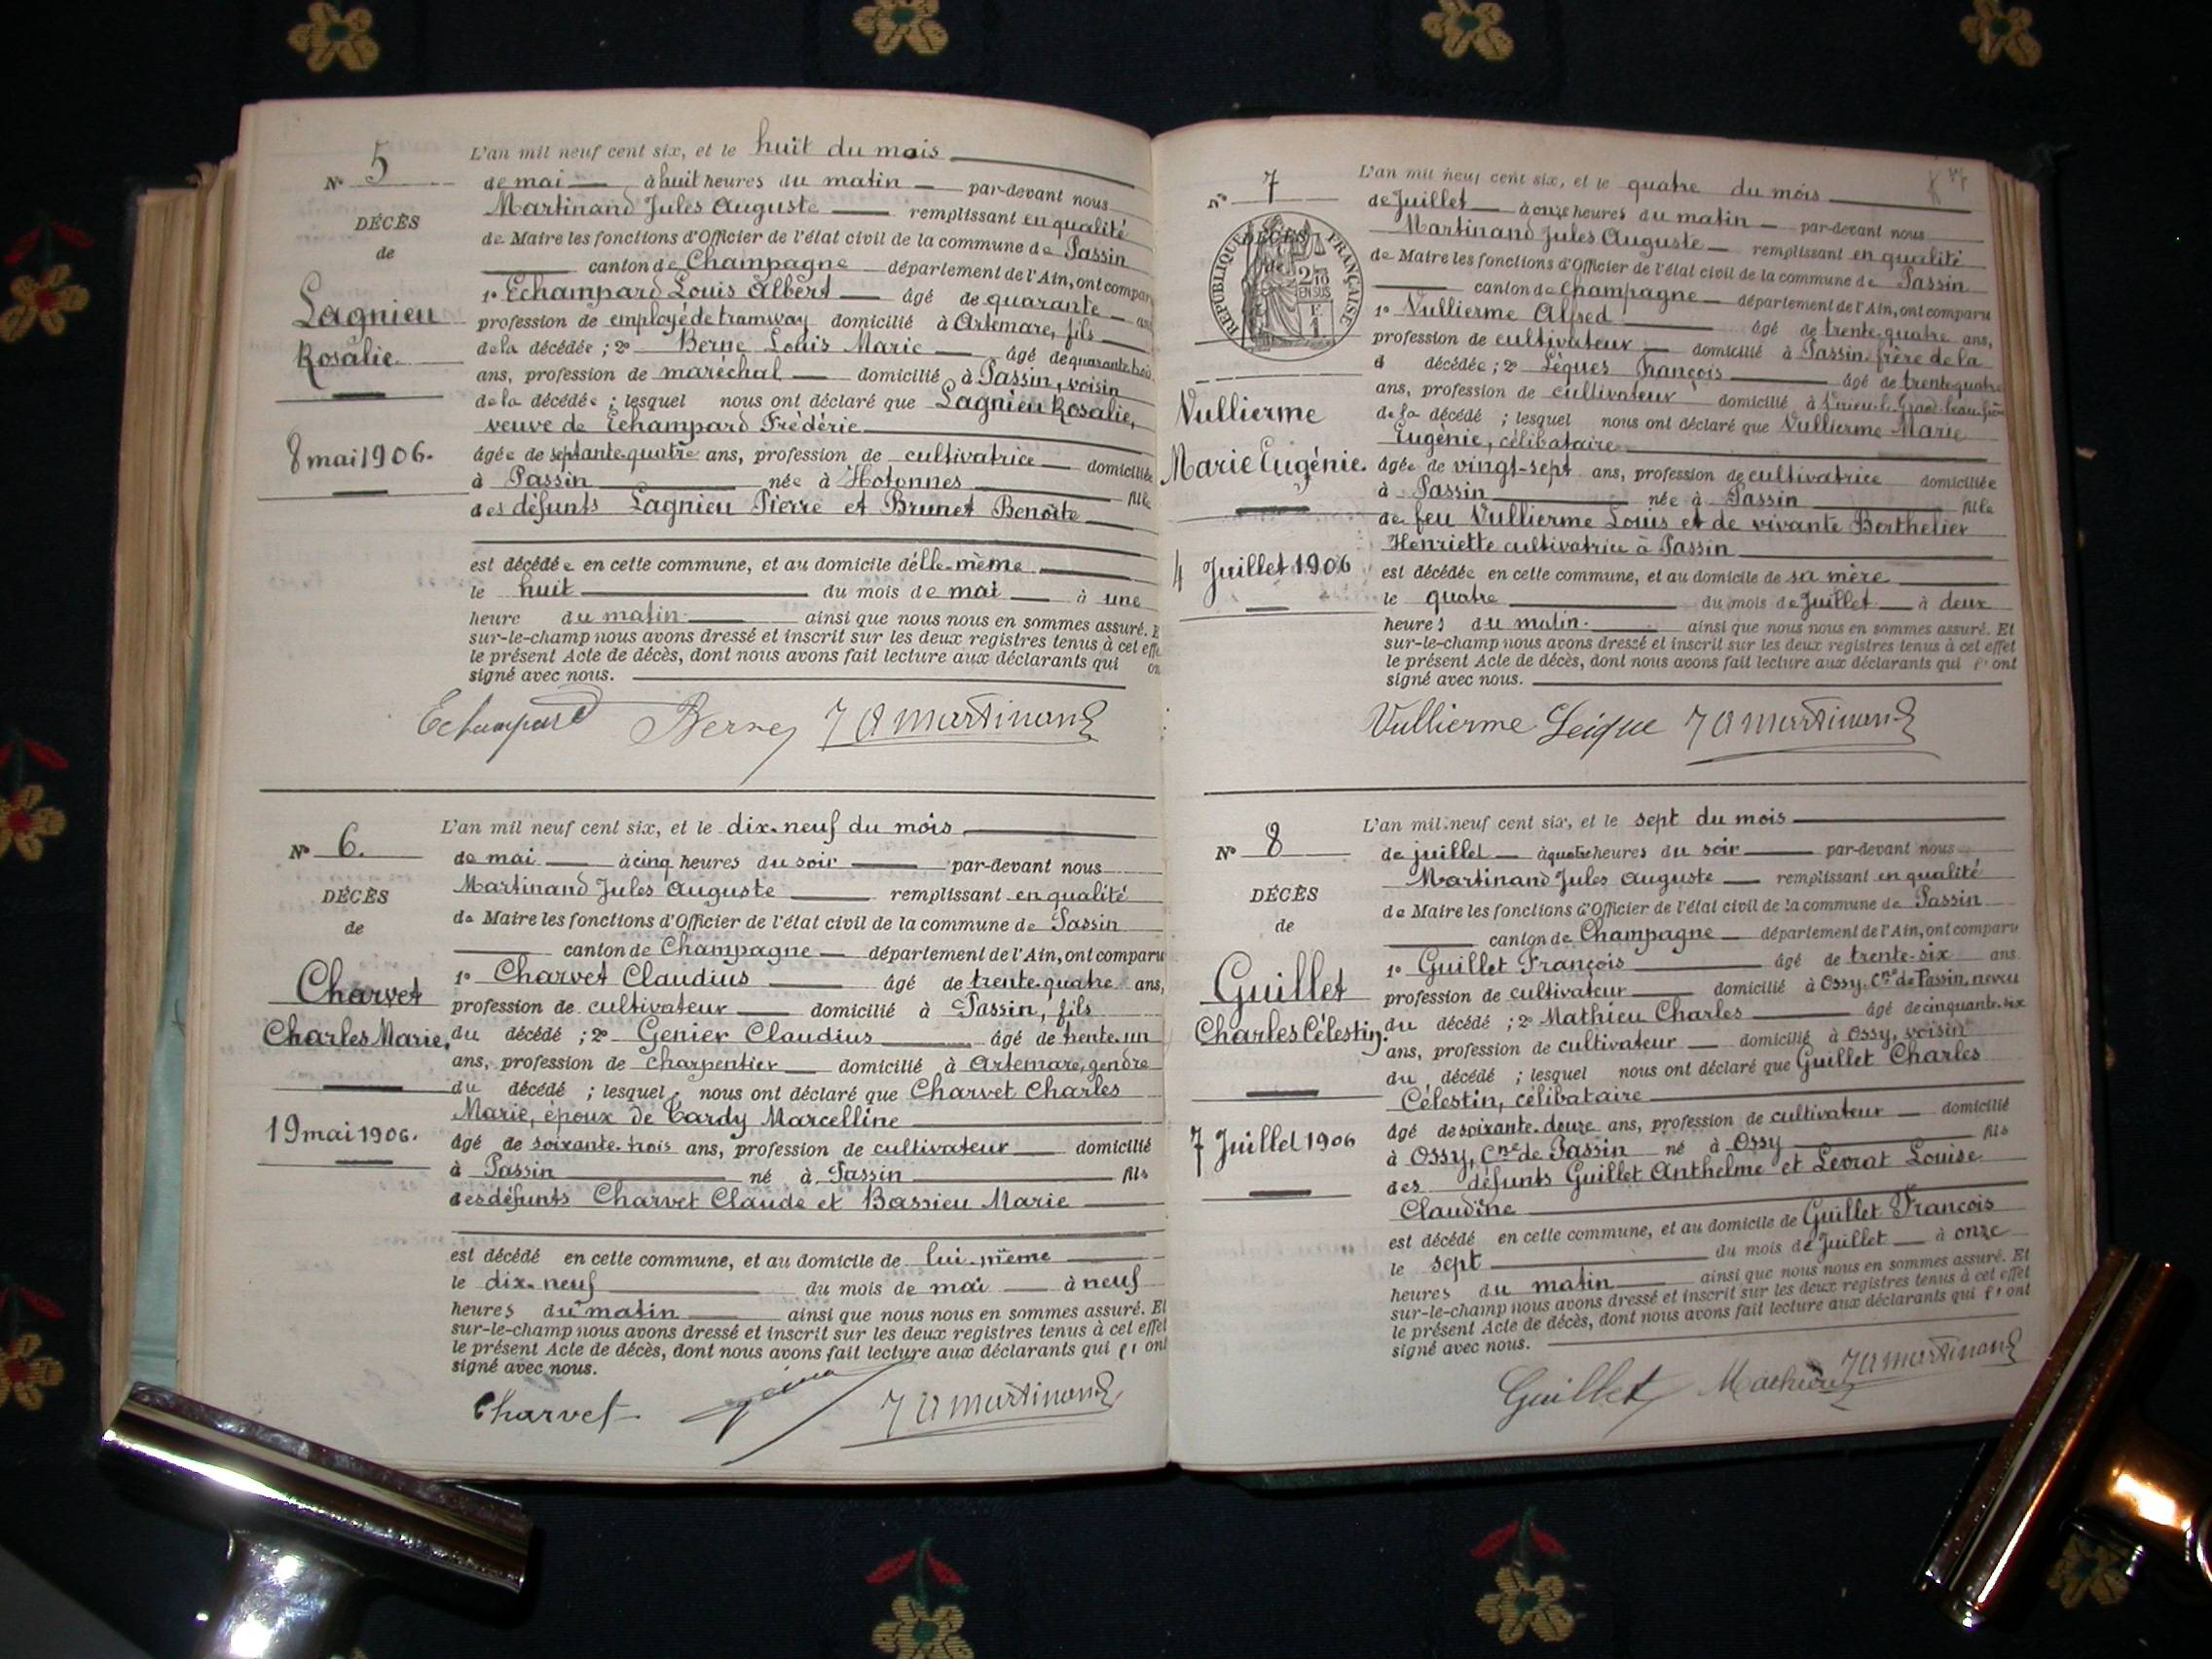 N° 5
DÉCÈS
de
Lagnieu
Rosalie
8 mai 1906.
L'an mil neuf cent six, et le huit du mois
de mai à huit heures du matin par-devant nous
Martinand Jules Auguste remplissant en qualité
de Maire les fonctions d'Officier de l'état civil de la commune de Passin
canton de Champagne département de l'Ain, ont compar
1° Echampard Louis Albert âgé de quarante ans
profession de employé de tramway domicilié à Artemare, fils
de la décédée ; 2° Berne Louis Marie âgé de quarante trois
ans, profession de maréchal domicilié à Passin, voisin
de la décédée ; lesquel nous ont déclaré que Lagnieu Rosalie,
veuve de Echampard Frédéric
âgée de septante-quatre ans, profession de cultivatrice domiciliée
à Passin née à Hotonnes fille
des défunts Lagnieu Pierre et Brunet Benoîte
est décédée en cette commune, et au domicile d'élle-même
le huit du mois de mai à une
heure du matin ainsi que nous nous en sommes assuré. E
sur-le-champ nous avons dressé et inscrit sur les deux registres tenus à cet effe
le présent Acte de décès, dont nous avons fait lecture aux déclarants qui on
signé avec nous.
Echampard Berne J A Martinand
N° 6.
DÉCÈS
de
Charvet
Charles Marie.
19 mai 1906.
L'an mil neuf cent six, et le dix-neuf du mois
de mai à cinq heures du soir par-devant nous
Martinand Jules Auguste remplissant en qualité
de Maire les fonctions d'Officier de l'état civil de la commune de Passin
canton de Champagne département de l'Ain, ont comparu
1° Charvet Claudius âgé de trente-quatre ans,
profession de cultivateur domicilié à Passin, fils
du décédé ; 2° Genier Claudius âgé de trente-un
ans, profession de charpentier domicilié à Artemare, gendre
du décédé ; lesquel nous ont déclaré que Charvet Charles
Marie, époux de Tardy Marcelline
âgé de soixante-trois ans, profession de cultivateur domicilié
à Passin né à Passin fils
des défunts Charvet Claude et Bassieu Marie
est décédé en cette commune, et au domicile de lui-même
le dix-neuf du mois de mai à neuf
heures du matin ainsi que nous nous en sommes assuré. Et
sur-le-champ nous avons dressé et inscrit sur les deux registres tenus à cet effet
le présent Acte de décès, dont nous avons fait lecture aux déclarants qui ont
signé avec nous.
Charvet J A Martinand
N° 7
DÉCÈS
de
RÉPUBLIQUE FRANÇAISE
2/10
EN SUS
Vullierme
Marie Eugénie.
4 Juillet 1906
L'an mil neuf cent six, et le quatre du mois
de Juillet à onze heures du matin par-devant nous
Martinand Jules Auguste remplissant en qualité
de Maire les fonctions d'Officier de l'état civil de la commune de Passin
canton de Champagne département de l'Ain, ont comparu
1° Vullierme Alfred âgé de trente-quatre ans,
profession de cultivateur domicilié à Passin frère de la
d décédée ; 2° Lègues François âgé de trente quatre
ans, profession de cultivateur domicilié à Virieu-le-Grand beau-frère
de la décédé ; lesquel nous ont déclaré que Vullierme Marie
Eugénie, célibataire
âgée de vingt-sept ans, profession de cultivatrice domiciliée
à Passin née à Passin fille
de feu Vullierme Louis et de vivante Berthelier
Henriette cultivatrice à Passin
est décédée en cette commune, et au domicile de sa mère
le quatre du mois de Juillet à deux
heures du matin. ainsi que nous nous en sommes assuré. Et
sur-le-champ nous avons dressé et inscrit sur les deux registres tenus à cet effet
le présent Acte de décès, dont nous avons fait lecture aux déclarants qui l'ont
signé avec nous.
Vullierme Leigue J A Martinand
N° 8
DÉCÈS
de
Guillet
Charles Célestin.
7 Juillet 1906
L'an mil neuf cent six, et le sept du mois
de juillet à quatre heures du soir par-devant nous
Martinand Jules Auguste remplissant en qualité
de Maire les fonctions d'Officier de l'état civil de la commune de Passin
canton de Champagne département de l'Ain, ont comparu
1° Guillet François âgé de trente-six ans
profession de cultivateur domicilié à Ossy, Cne de Passin, neveu
du décédé ; 2° Mathieu Charles âgé de cinquante-six
ans, profession de cultivateur domicilié à Ossy, voisin
du décédé ; lesquel nous ont déclaré que Guillet Charles
Célestin, célibataire
âgé de soixante-douze ans, profession de cultivateur domicilié
à Ossy, Cne de Passin né à Ossy fils
des défunts Guillet Anthelme et Levrat Louise
Claudine
est décédé en cette commune, et au domicile de Guillet François
le sept du mois de Juillet à onze
heures du matin ainsi que nous nous en sommes assuré. Et
sur-le-champ nous avons dressé et inscrit sur les deux registres tenus à cet effet
le présent Acte de décès, dont nous avons fait lecture aux déclarants qui l'ont
signé avec nous.
Guillet Mathieu J A Martinand